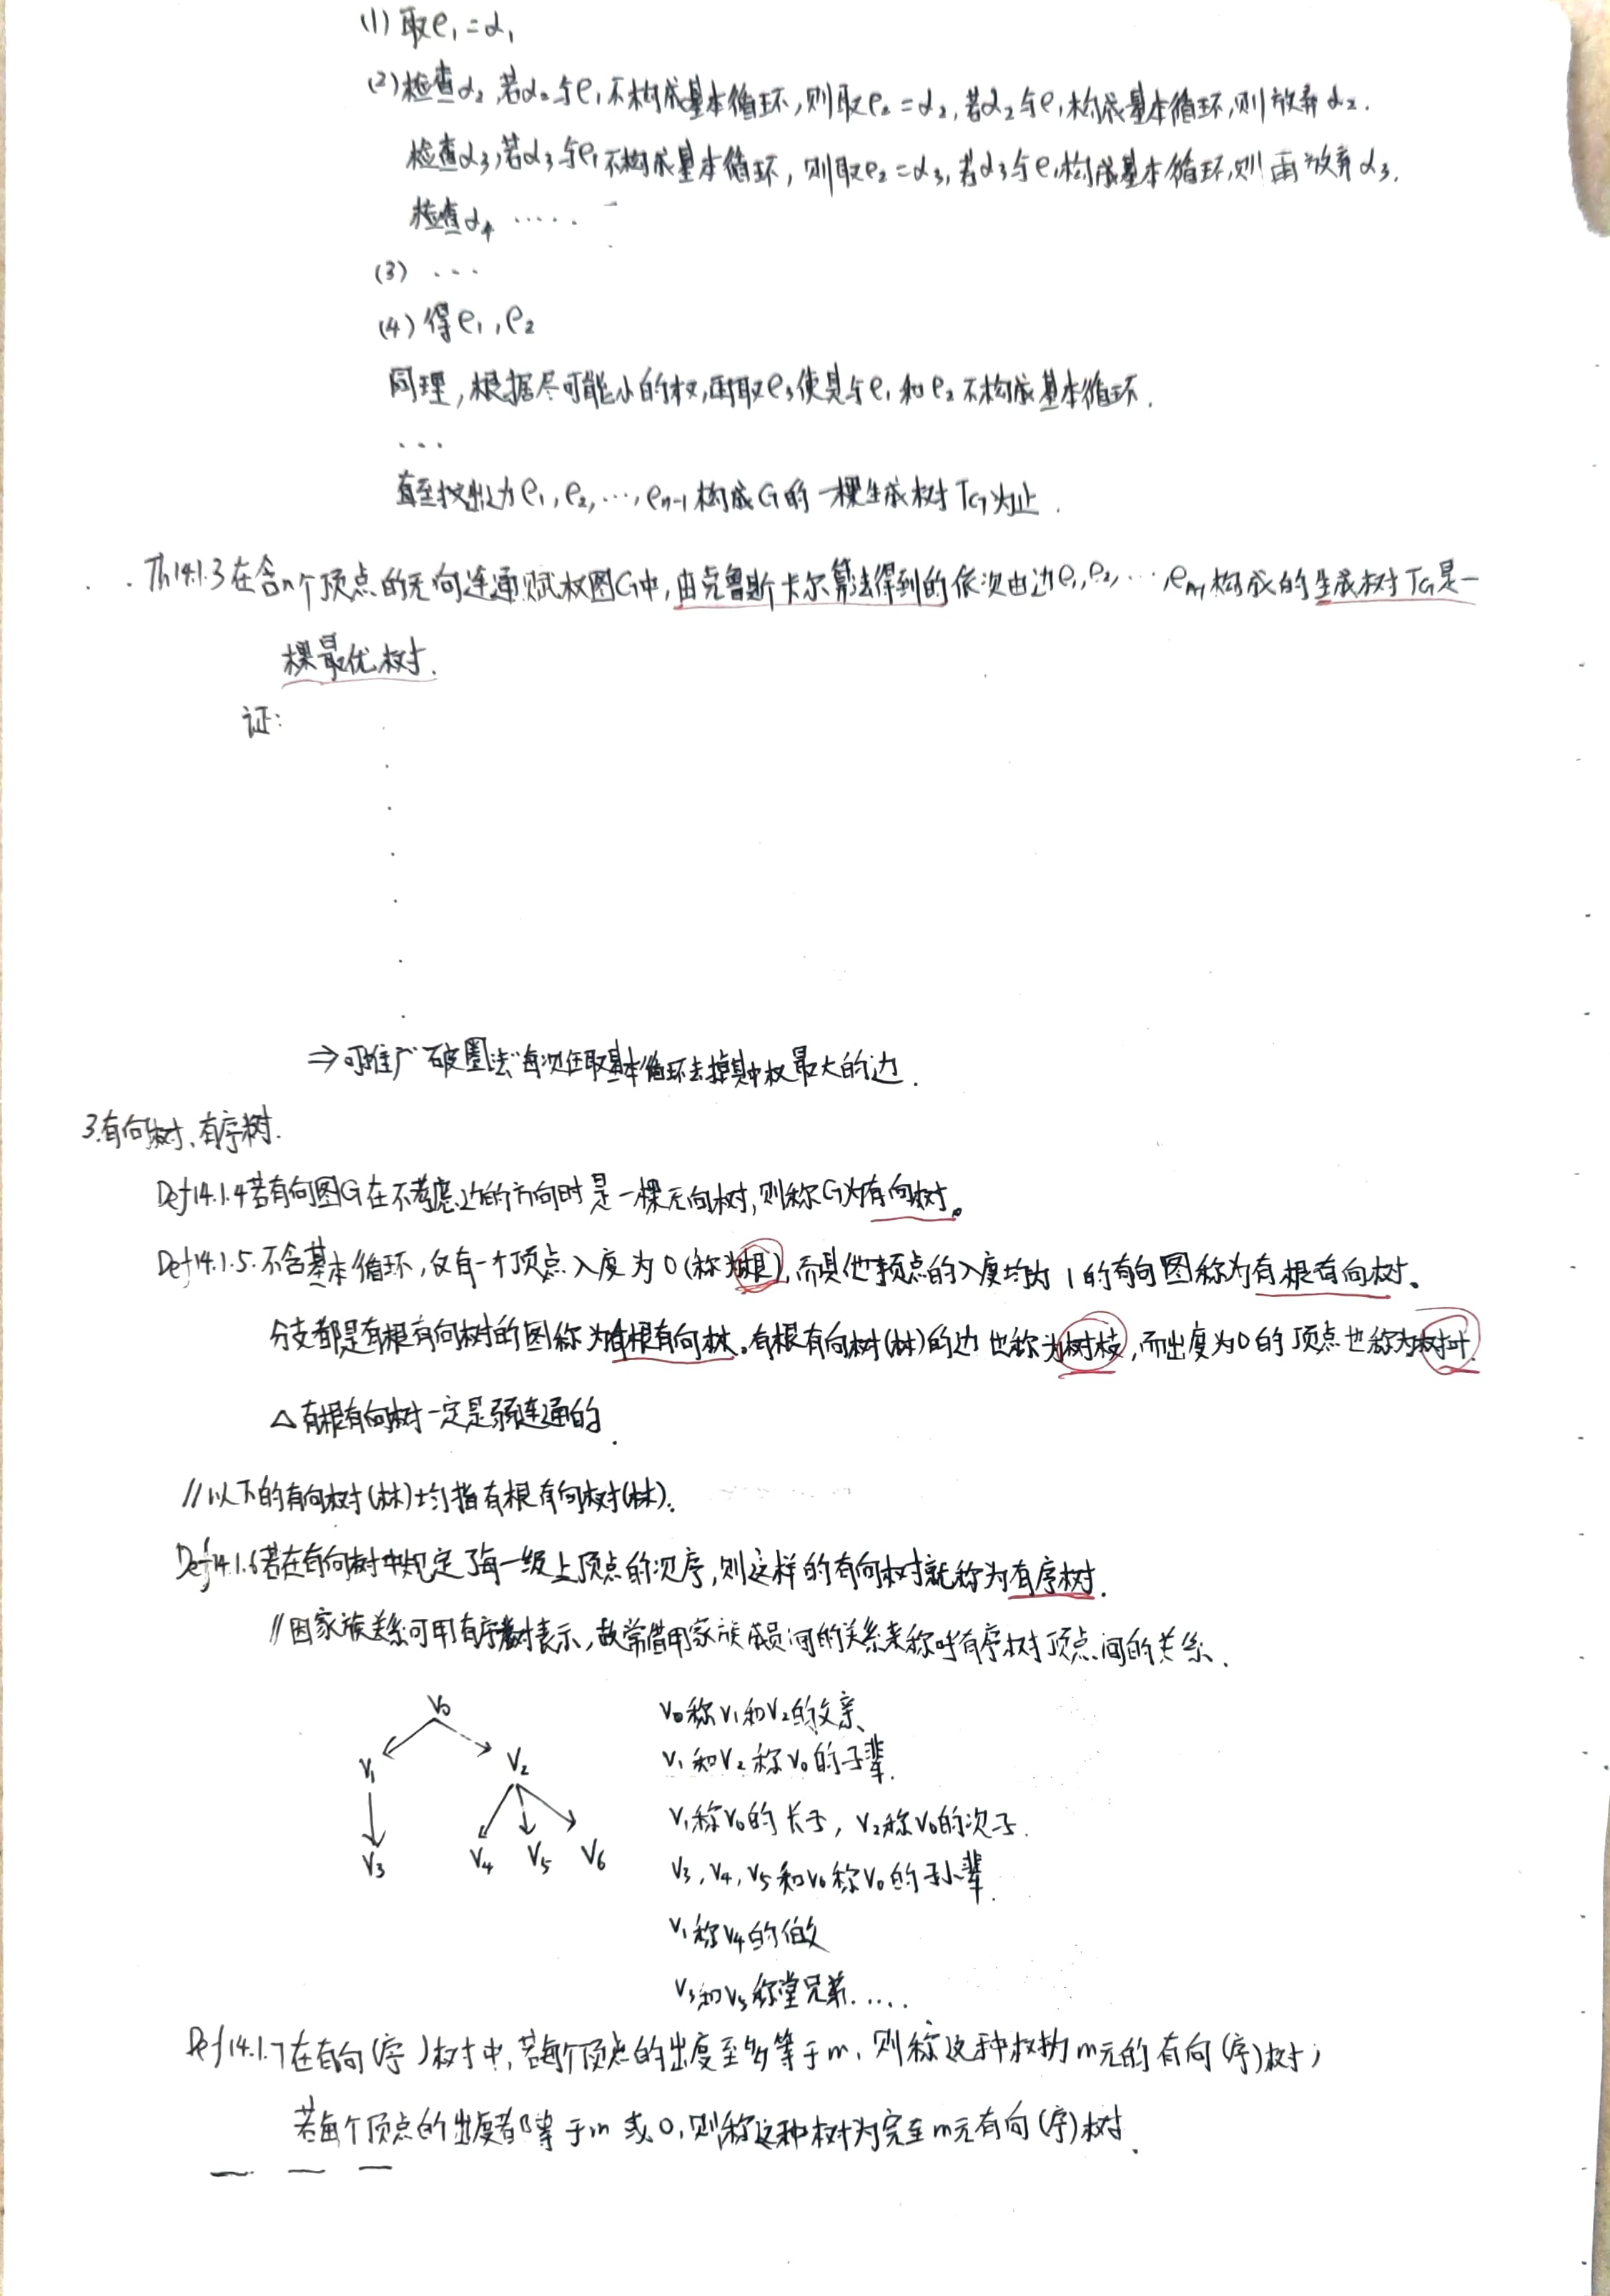 (1) 取e₁=α₁
(2) 检查α₂,若α₂与e₁不构成基本循环,则取e₂=α₂,若α₂与e₁构成基本循环,则放弃α₂.
检查α₃,若α₃与e₁不构成基本循环,则取e₂=α₃,若α₃与e₁构成基本循环,则再放弃α₃.
检查α₄ ……
(3) …
(4) 得e₁,e₂
同理,根据尽可能小的权,再取e₃使其与e₁和e₂不构成基本循环.
…
直至找出边e₁,e₂,…,eₙ₋₁构成G的一棵生成树T_G为止.
Th14.1.3 在含n个顶点的无向连通赋权图G中,由克鲁斯卡尔算法得到的依次由边e₁,e₂,…,eₙ₋₁构成的生成树T_G是一
棵最优树.
证:
⇒可推广"破圈法"每次任取基本循环去掉其中权最大的边.
3.有向树、有序树.
Def14.1.4若有向图G在不考虑边的方向时是一棵无向树,则称G为有向树。
Def14.1.5.不含基本循环,仅有一个顶点入度为0(称为根),而其他顶点的入度均为1的有向图称为有根有向树。
分支都是有根有向树的图称为有根有向林。有根有向树(林)的边也称为树枝,而出度为0的顶点也称为树叶.
△有根有向树一定是弱连通的.
//以下的有向树(林)均指有根有向树(林).
Def14.1.6若在有向树中规定了每一级上顶点的次序,则这样的有向树就称为有序树.
//因家族关系可用有序树表示,故常借用家族成员间的关系来称呼有序树顶点间的关系.
V₀
V₁ V₂
V₃ V₄ V₅ V₆
V₀称V₁和V₂的父亲
V₁和V₂称V₀的子辈.
V₁称V₀的长子, V₂称V₀的次子.
V₃,V₄,V₅和V₆称V₀的孙辈.
V₁称V₄的伯父
V₃和V₅称堂兄弟.….
Def14.1.7在有向(序)树中,若每个顶点的出度至多等于m,则称这种树为m元的有向(序)树;
若每个顶点的出度都等于m或0,则称这种树为完全m元有向(序)树.